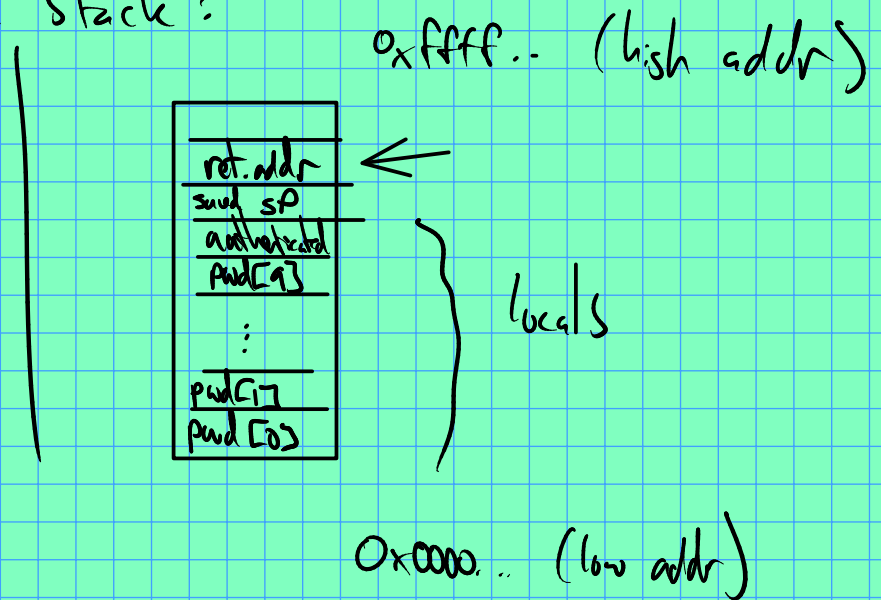 Stack:
0xffff.. (high addr)
ret. addr
saved SP
authenticated
pwd[9]
⋮
locals
pwd[1]
pwd[0]
0x0000... (low addr)